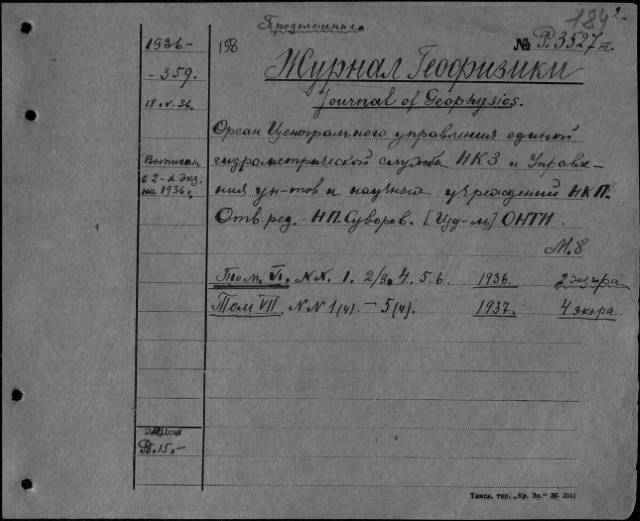 Продолжение
184 2.
1936-
-359.
18.V.36.
Выписан
в 2-х экз.
на 1936 г.
198
№ Р.3527 III.
Журнал Геофизики
Journal of Geophysics.
Орган Центрального управления единой
гидрометрической службы НКЗ и Управле-
ния ун-тов и научных учреждений НКП.
Отв. ред. Н.П. Суворов. [Изд-ль] ОНТИ.
М. 8
Том. VI. NN. 1. 2/3. 4. 5. 6. 1936. 2 экз-ра
Том VII. NN 1(4). - 5(4). 1937. 4 экз-ра.
Рб. 15.-
Томск, тип. „Кр. Зн.“ 36- 3041